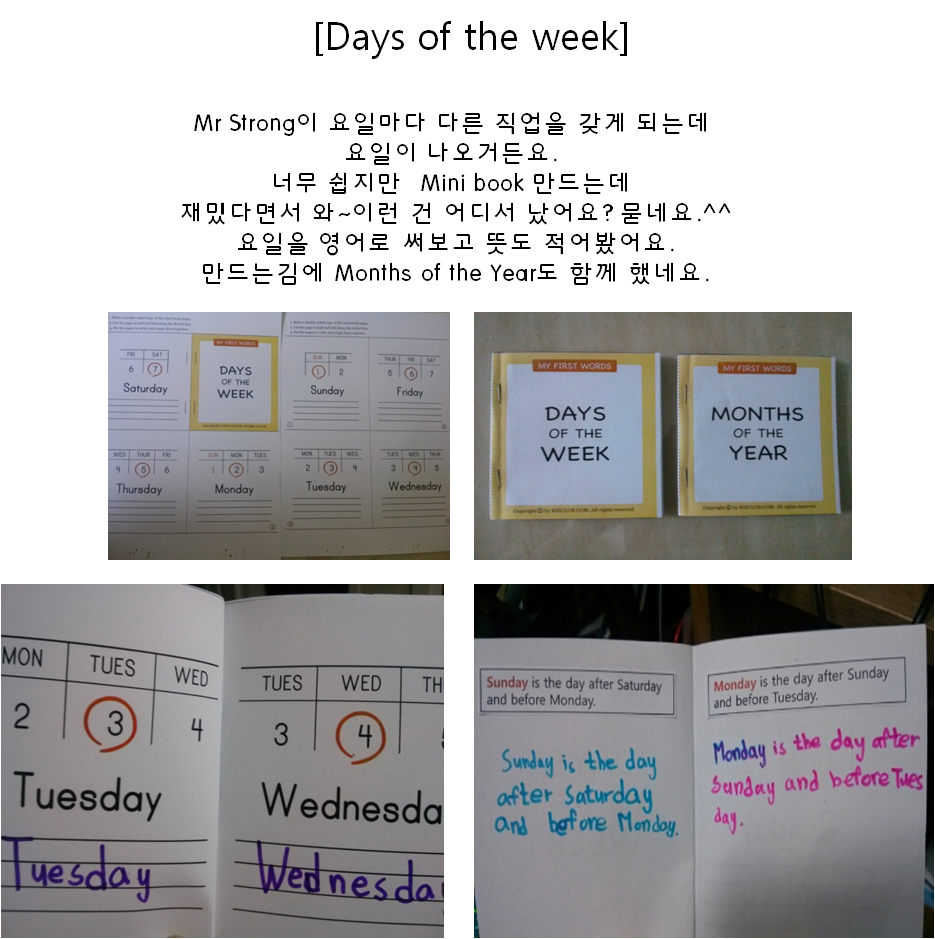 [Days of the week]
Mr Strong이 요일마다 다른 직업을 갖게 되는데
요일이 나오거든요.
너무 쉽지만 Mini book 만드는데
재밌다면서 와~이런 건 어디서 났어요? 묻네요.^^
요일을 영어로 써보고 뜻도 적어봤어요.
만드는김에 Months of the Year도 함께 했네요.
FRI SAT
6 7
Saturday
MY FIRST WORDS
DAYS
OF THE
WEEK
SUN MON
1 2
Sunday
THUR FRI SAT
5 6 7
Friday
WED THUR FRI
4 5 6
Thursday
SUN MON TUES
1 2 3
Monday
MON TUES WED
2 3 4
Tuesday
TUES WED THUR
3 4 5
Wednesday
MY FIRST WORDS
DAYS
OF THE
WEEK
Copyright © by KIZCLUB.COM. All rights reserved.
MY FIRST WORDS
MONTHS
OF THE
YEAR
Copyright © by KIZCLUB.COM. All rights reserved.
MON TUES WED
2 3 4
Tuesday
Tuesday
TUES WED TH
3 4
Wednesda
Wednesda
Sunday is the day after Saturday
and before Monday.
Sunday is the day
after Saturday
and before Monday.
Monday is the day after Sunday
and before Tuesday.
Monday is the day after
Sunday and before Tues
day.